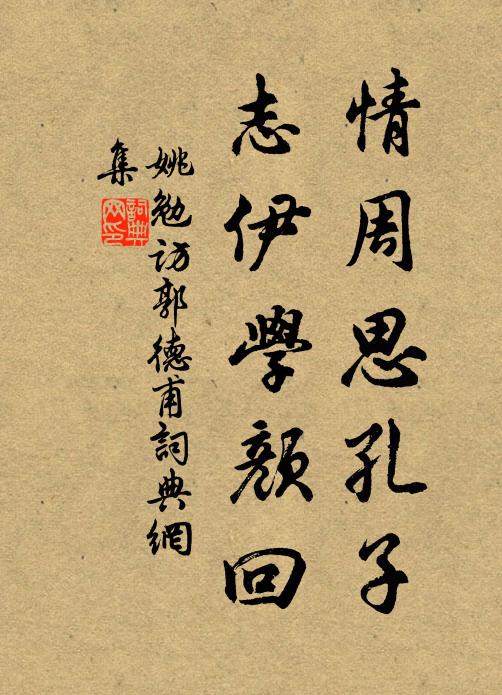 情周思孔子
志伊學顏回
姚勉訪郭德甫詞典網
集
詞典
网印